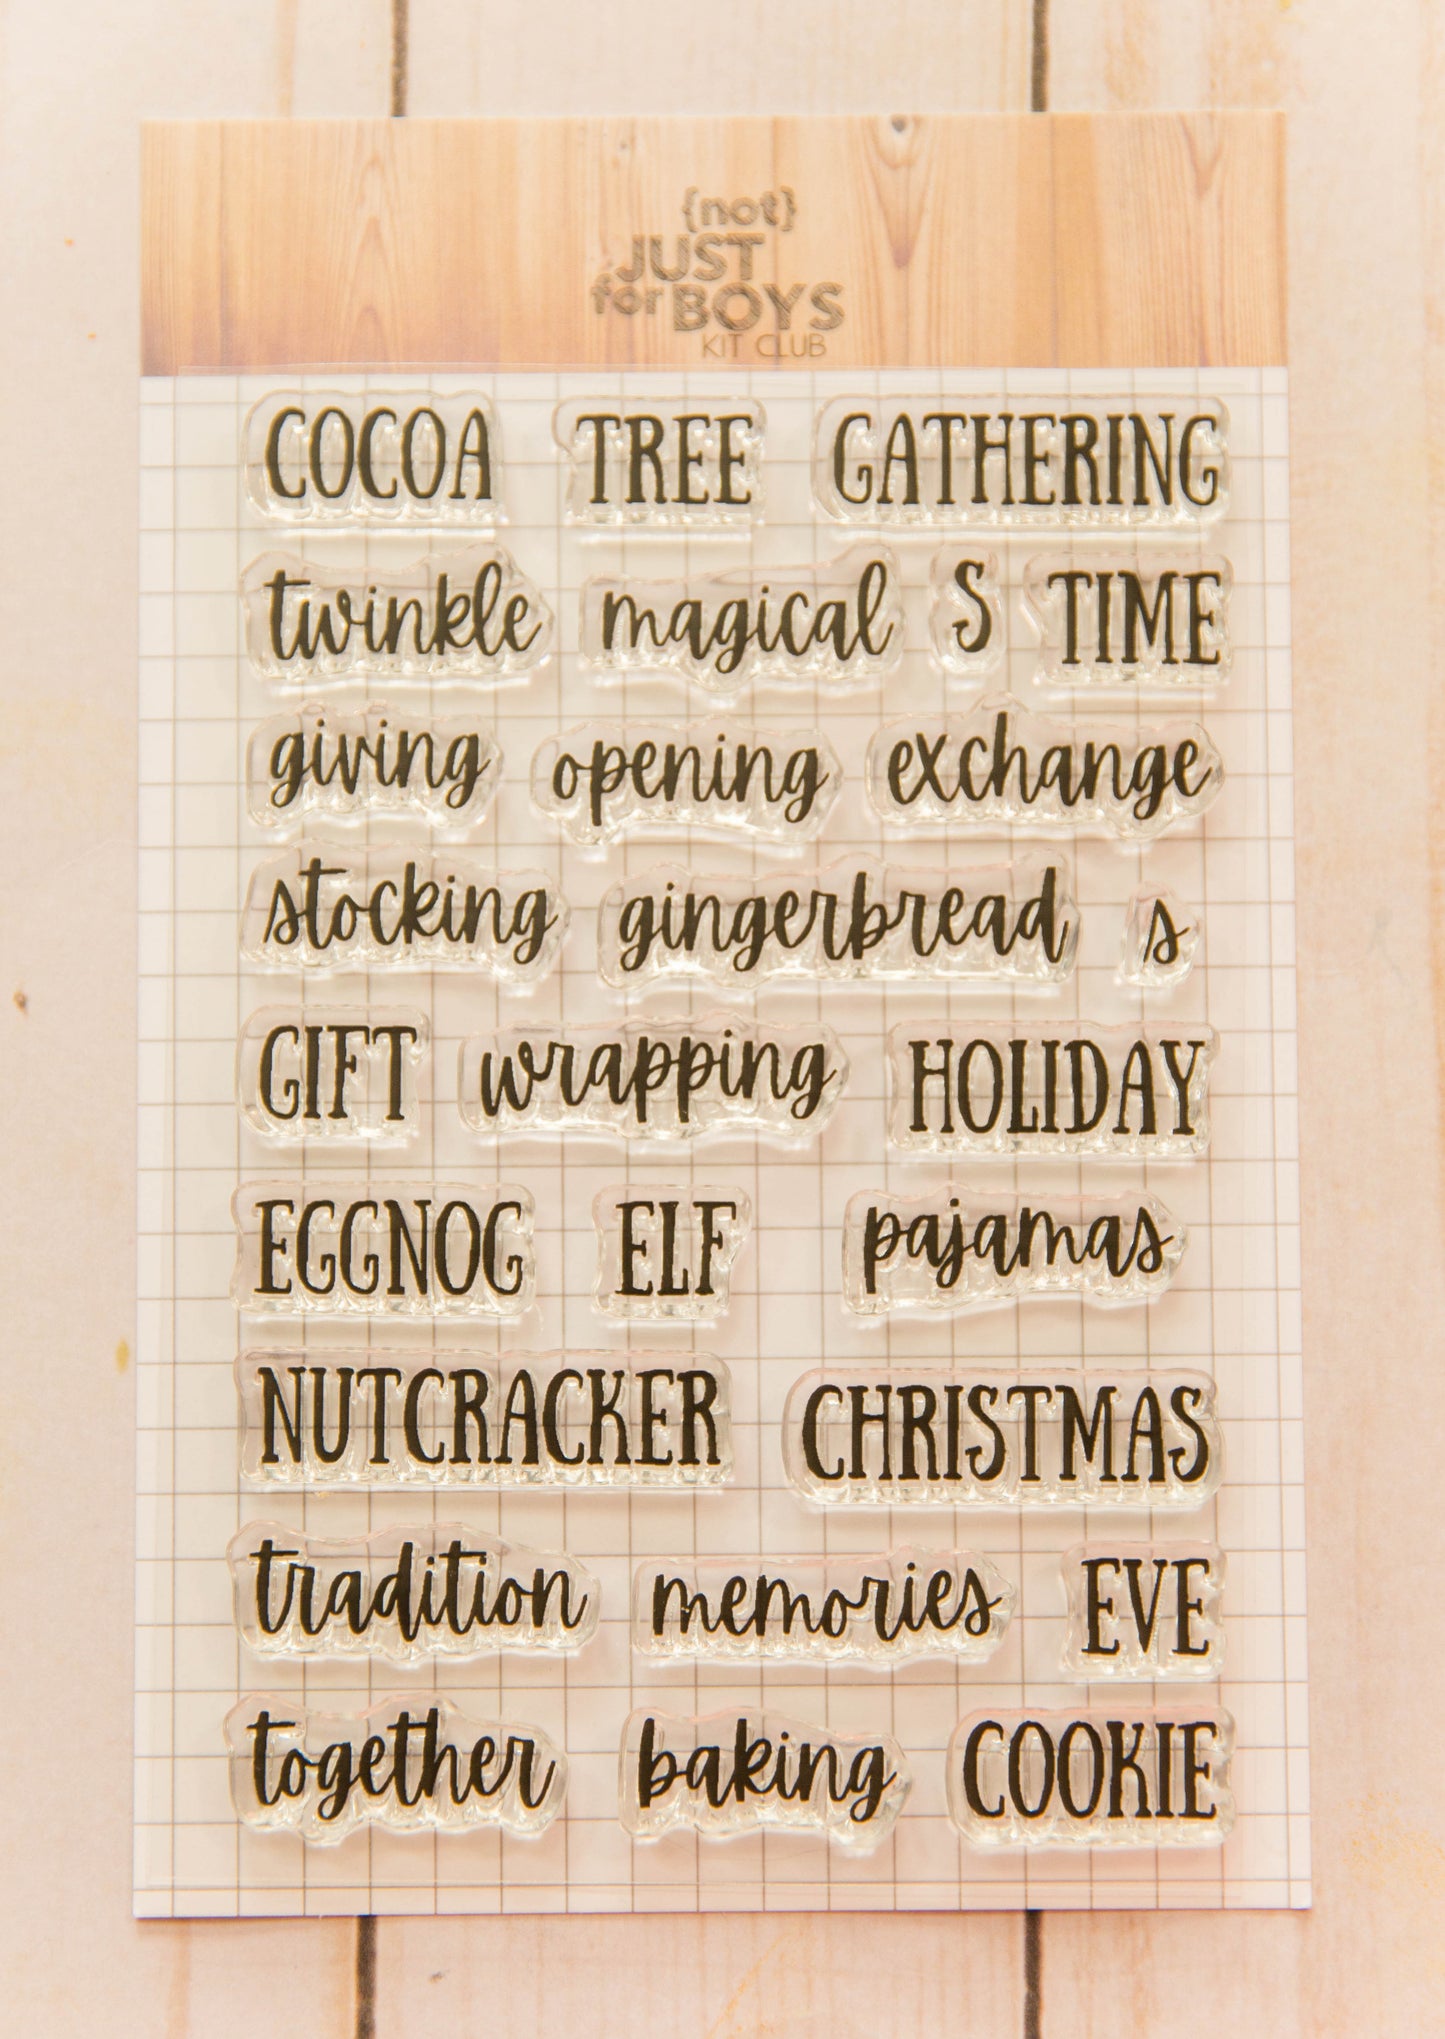 {not}
JUST
for BOYS
KIT CLUB
COCOA TREE GATHERING
twinkle magical S TIME
giving opening exchange
stocking gingerbread s
GIFT wrapping HOLIDAY
EGGNOG ELF pajamas
NUTCRACKER CHRISTMAS
tradition memories EVE
together baking COOKIE